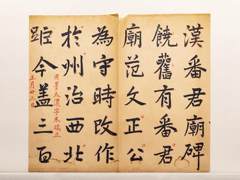 漢番君廟碑
饒舊有番君
廟范文正公
為守時改作
於州治西北
距今蓋三百